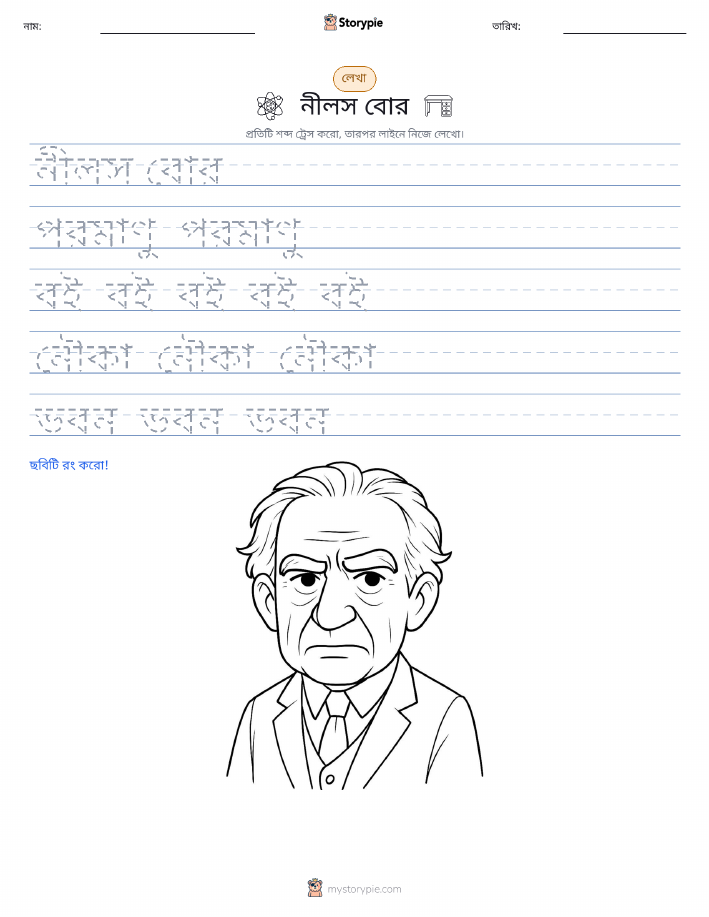 নাম:
Storypie
তারিখ:
লেখা
নীলস বোর
প্রতিটি শব্দ ট্রেস করো, তারপর লাইনে নিজে লেখো।
নীলস বোর
পরমাণু পরমাণু
বই বই বই বই বই
নৌকা নৌকা নৌকা
ভবন ভবন ভবন
ছবিটি রং করো!
mystorypie.com